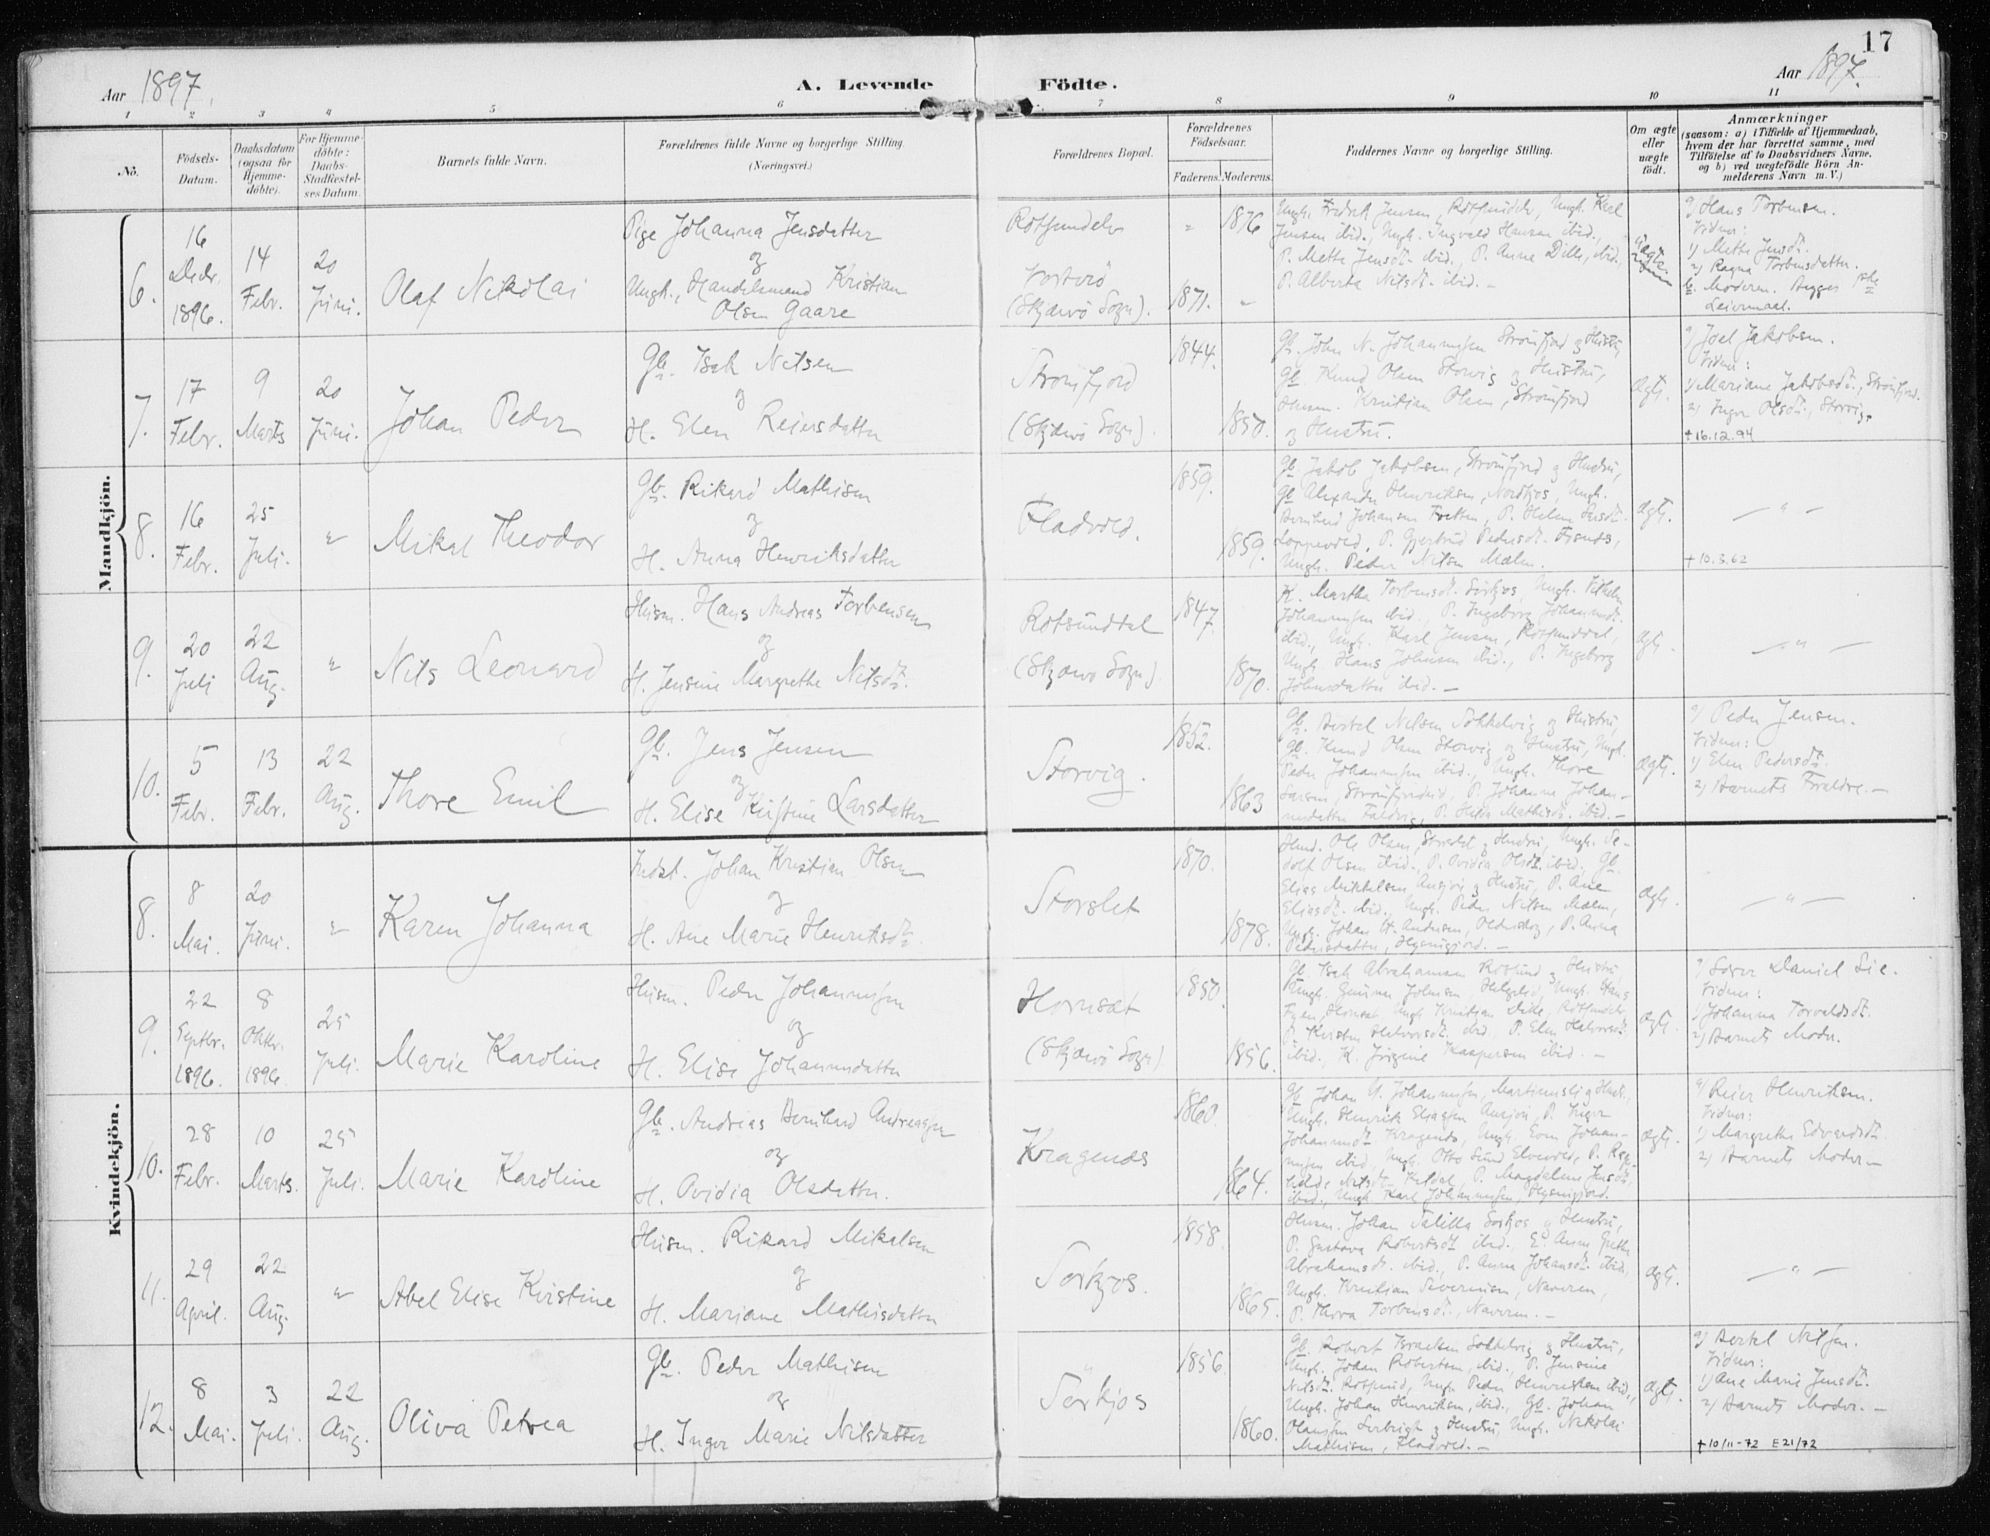 17
Aar 1897.
A. Levende Födte.
Aar 1897.
1 2 3 4 5 6 7 8 9 10 11
No.
Födsels-Datum.
Daabsdatum (ogsaa for Hjemme-döbte).
For Hjemme-döbte: Daabs-Stadfæstel-ses Datum.
Barnets fulde Navn.
Forældrenes fulde Navne og borgerlige Stilling
(Næringsvei.)
Forældrenes Bopæl.
Forældrenes Födselsaar.
Faderens. Moderens.
Faddernes Navne og borgerlige Stilling.
Om ægte eller uægte födt.
Anmærkninger
(saasom: a) i Tilfælde af Hjemmedaab,
hvem der har forrettet samme, med
Tilföielse af to Daabsvidners Navne,
og b) ved uægtefödte Börn An-
melderens Navn m. V.)
Mandkjön.
6.
16 Decbr. 1896.
14 Febr.
20 Juni.
Olaf Nikolai
Pige Johanna Jensdatter
og
Ungk., Handelsmand Kristian
Olsen Gaare
Rotsundelv
Vorterö
(Skjærvö Sogn).
" 1876
1871. "
Ungk. Fredrik Jensen, Rotsundelv, Ungk. Karl
Jensen ibid., Ungk. Ingvald Hansen ibid.,
P. Mette Jensdt. ibid., P. Anna Dille, ibid.
P. Alberta Nilsdt. ibid. —
Uægte
a) Hans Torbensen.
Vidner:
1) Mette Jensdt.
2) Ragna Torbensdatter.
b. Moderen. Begges 1ste
Leiermaal.
7.
17 Febr.
9 Marts
20 Juni.
Johan Peder
Gb. Isak Nilsen
og
H. Elen Reiersdatter
Strömfjord
(Skjærvö Sogn).
1844.
1850.
Gb. John N. Johannesen Strömfjord og Hustru,
Gb. Knud Olsen Storvig og Hustru,
Husm. Kristian Olsen, Strömfjord
og Hustru.
ægte.
a) Joel Jakobsen.
Vidner:
1) Mariane Jakobsdt., Strömfjord.
2) Inger Olsdt., Storvig.
+ 16.12.94
8.
16 Febr.
25 Juli.
"
Mikal Theodor
Gb. Rikard Mathisen
og
H. Anna Henriksdatter
Fladvold.
1859.
1859.
Gb. Jakob Jakobsen, Strömfjord og Hustru,
Gb. Alexander Henriksen, Nordkjos, Ungk.
Bernhard Johansen Fretten, P. Helene
Loppevold, P. Gjertrud Pedersdt.
Ungk. Peder Nilsen Mælen.
ægte.
— " —
+ 10.3.62
9.
20 Juli
22 Aug.
"
Nils Leonard
Husm. Hans Andreas Torbensen
og
H. Jensine Margrethe Nilsdt.
Rotsundtal
(Skjærvö Sogn).
1847.
1870.
K. Martha Torbensdt. Sörkjos, Ungk. Vilhelm
Johannesen ibid., P. Ingeborg Johannesdt.
ibid., Ungk. Karl Jensen, Rotsunddal,
Ungk. Hans Johnsen ibid., P. Ingeborg
Johnsdatter ibid. —
ægte.
— " —
10.
5 Febr.
13 Febr.
22 Aug.
Thore Emil
Gb. Jens Jensen
og
H. Elise Kirstine Larsdatter
Storvig.
1852.
1863
Gb. Bertel Nilsen Sokkelvig og Hustru,
Gb. Knud Olsen Storvig og Hustru, Ungk.
Peder Johannesen ibid., Ungk. Thore
Larsen, P. Johanna Johan-
nesdatter P. Mathisdt. ibid. —
ægte.
a) Peder Jensen.
Vidner:
1) Elen Pedersdt.
2) Barnets Forældre. —
Kvindekjön.
8.
8 Mai.
20 Juni.
"
Karen Johanna
Indst. Johan Kristian Olsen
og
H. Ane Marie Henriksdt.
Storslet
1870.
1878.
Husm. Ole Olsen, Storslet og Hustru, Ungk.
Olsen ibid., P. Ovidia Olsdt. ibid., Gb.
Elias Mikkelsen, og Hustru, P. Ane
Eliasdt. ibid., Ungk. Peder Nilsen Mælen,
Ungk. Johan H. Andersen, P. Anna
Pedersdatter, —
ægte.
— " —
9.
22 Septbr. 1896.
8 Oktbr. 1896.
25 Juli.
Marie Karoline
Husm. Peder Johannesen
og
H. Elise Johannesdatter
Hornsæt
(Skjærvö Sogn)
1850.
1856.
Gb. Isak Abrahamsen Rotsund og Hustru,
Ungk. Gunnar Johnsen, Ungk. Hans
Hornsæt Ungk. Kristian Dille, Rotsundelv,
P. Kirsten Halvorsdt. ibid. P. Elen Halvorsdt.
ibid., K. Jörgine Kaspersen ibid. —
ægte.
a) Lærer Daniel Lie.
Vidner:
1) Johanna Torvaldsdt.
2) Barnets Moder.
10.
28 Febr.
10 Marts.
25 Juli.
Marie Karoline
Gb. Andreas Bernhard Andreasen
og
H. Ovidia Olsdatter.
Kragenæs
1860.
1864.
Gb. Johan Johannesen, og Hustru,
Ungk. Henrik P. Inger
Johannesdt. Kragenæs, Ungk. Johan-
nesen ibid., Ungk. Otto Sund Elvevold, P.
Nilsdt. P. Magdalene Jensdt.
ibid., Ungk. Karl Johannesen,
ægte.
a) Reier Henriksen.
Vidner:
1) Margrethe Edvardsdt.
2) Barnets Moder —
11.
29 April.
22 Aug.
"
Abel Elise Kristine
Husm. Rikard Mikalsen
og
H. Mariane Mathisdatter
Sörkjos.
1858.
1865.
Husm. Johan Salilla Sörkjos og Hustru,
P. Gustava Robertsdt. ibid., E. Anne Grethe
Abrahamsdt. ibid., P. Anna Johansdt. ibid.
Ungk. Kristian Severinsen, Naveren,
P. Thora Torbensdt., Naveren. —
ægte.
— " —
12.
8 Mai.
3 Juli.
22 Aug.
Oliva Petrea
Gb. Peder Mathisen
og
H. Inger Marie Nilsdatter
Sörkjos
1856
1860.
Gb. Robert Israelsen Sokkelvig og Hustru,
Ungk. Johan Robertsen, ibid., P. Jensine
Nilsdt. Rotsund, Ungk. Peder Henriksen ibid.,
Ungk. Johan Henriksen, ibid., Gb. Johan
og Hustru, Ungk. Nikolai
Mathisen, Fladvold. —
ægte.
a) Bertel Nilsen.
Vidner:
1) Ane Marie Jensdt.
2) Barnets Moder. —
+ 10/11-72 E21/72